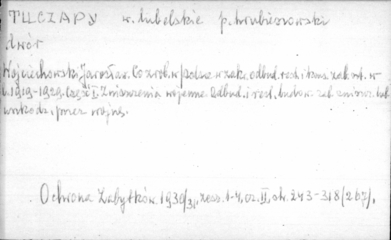 TUCZAPY w. lubelskie p. hrubieszowski
dwór
Wojciechowski Jarosław. Co zrob. w Polsce w zakr. odbud. rest. i kons. zab. w
l. 1919-1929. Część I. Zniszczenia wojenne. Odbud. i rest. budow. zab. zniszcz. lub
uszkodz. przez wojnę.
Ochrona Zabytków. 1930/31, zesz. 1-4, cz. II, str. 243-318 (267).